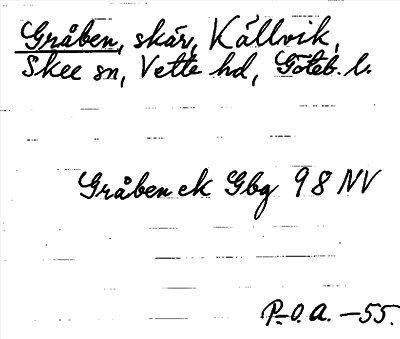 Gråben, skär, Källvik,
Skee sn, Vette hd, Göteb. l.
Gråben ek Gbg 98 NV
P.-O.A. -55.